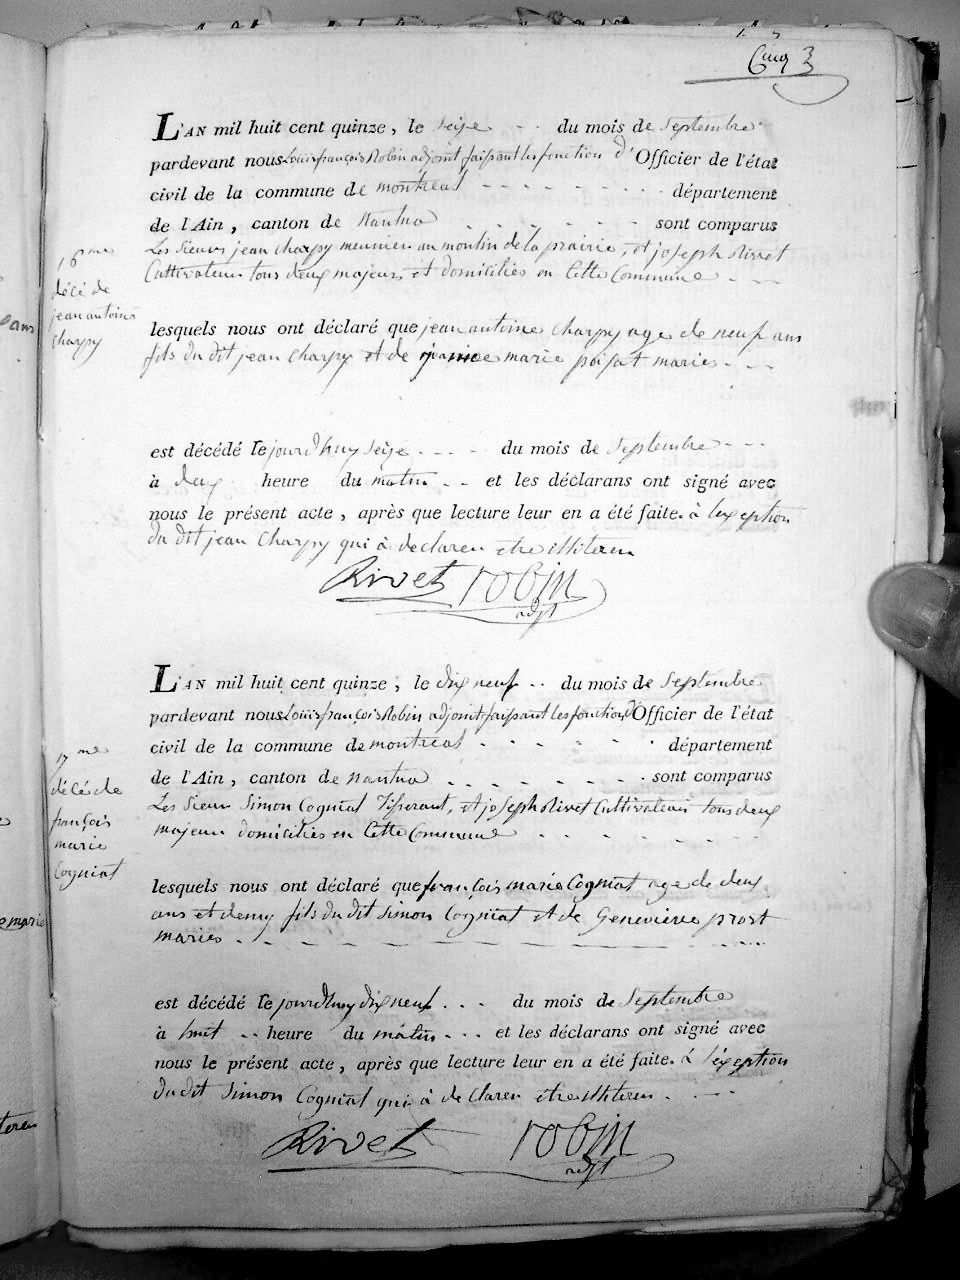 Cinq 3
L'AN mil huit cent quinze, le seize du mois de Septembre
pardevant nous Louis françois Robin adjoint faisant les fonction d'Officier de l'état
civil de la commune de montréal département
de l'Ain, canton de Nantua sont comparus
Les Sieurs jean charpy meunier au moulin de la prairie, et joseph olivet
Cultivateur tous deux majeurs et domiciliés en Cette Commune
16me
décé de
jean antoine
charpy
lesquels nous ont déclaré que jean antoine charpy age de neuf ans
fils du dit jean charpy et de marie poisat mariés
est décédé le jourd'huy seize du mois de Septembre
à deux heure du matin et les déclarans ont signé avec
nous le présent acte, après que lecture leur en a été faite. à l'exception
du dit jean Charpy qui à declaren etre illiteren
Rivet robin
adjt
L'AN mil huit cent quinze, le dix neuf du mois de Septembre
pardevant nous Louis françois Robin adjoint faisant les fonction d'Officier de l'état
civil de la commune de montréal département
de l'Ain, canton de nantua sont comparus
Les Sieur Simon Cogniat Tisserant, et joseph olivet Cultivateur tous deux
majeur domiciliés en Cette Commune
17me
décé de
françois
marie
Cogniat
lesquels nous ont déclaré que françois marie Cogniat age de deux
ans et demy fils du dit Simon Cogniat et de Genevieve prost
mariés
est décédé le jourd'huy dix neuf du mois de Septembre
à huit heure du matin et les déclarans ont signé avec
nous le présent acte, après que lecture leur en a été faite. à l'éxception
du dit Simon Cogniat qui à de Claren etre illiteren
Rivet robin
adjt